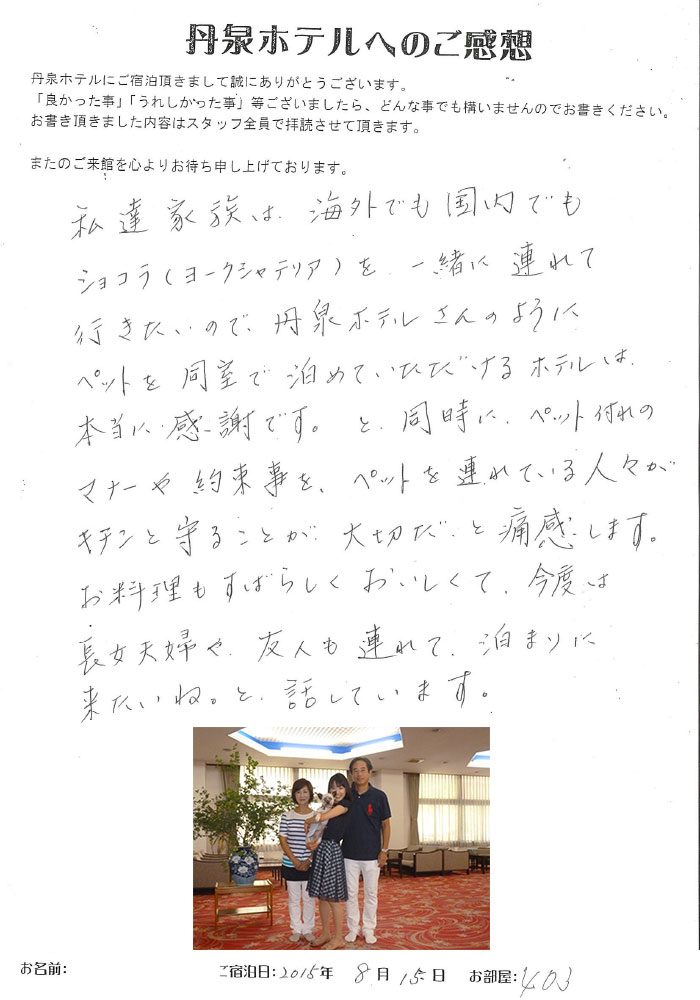 丹泉ホテルへのご感想
丹泉ホテルにご宿泊頂きまして誠にありがとうございます。
「良かった事」「うれしかった事」等ございましたら、どんな事でも構いませんのでお書きください。
お書き頂きました内容はスタッフ全員で拝読させて頂きます。
またのご来館を心よりお待ち申し上げております。
私達家族は、海外でも国内でも
ショコラ(ヨークシャテリア)を、一緒に連れて
行きたいので、丹泉ホテルさんのように
ペットを同室で泊めていただけるホテルは、
本当に感謝です。と、同時に、ペット付れの
マナーや約束事を、ペットを連れている人々が
キチンと守ることが大切だと痛感します。
お料理もすばらしくおいしくて、今度は
長女夫婦や、友人も連れて、泊まりに
来たいね。と、話しています。
お名前: ご宿泊日: 2015年 8月 15日 お部屋: 403